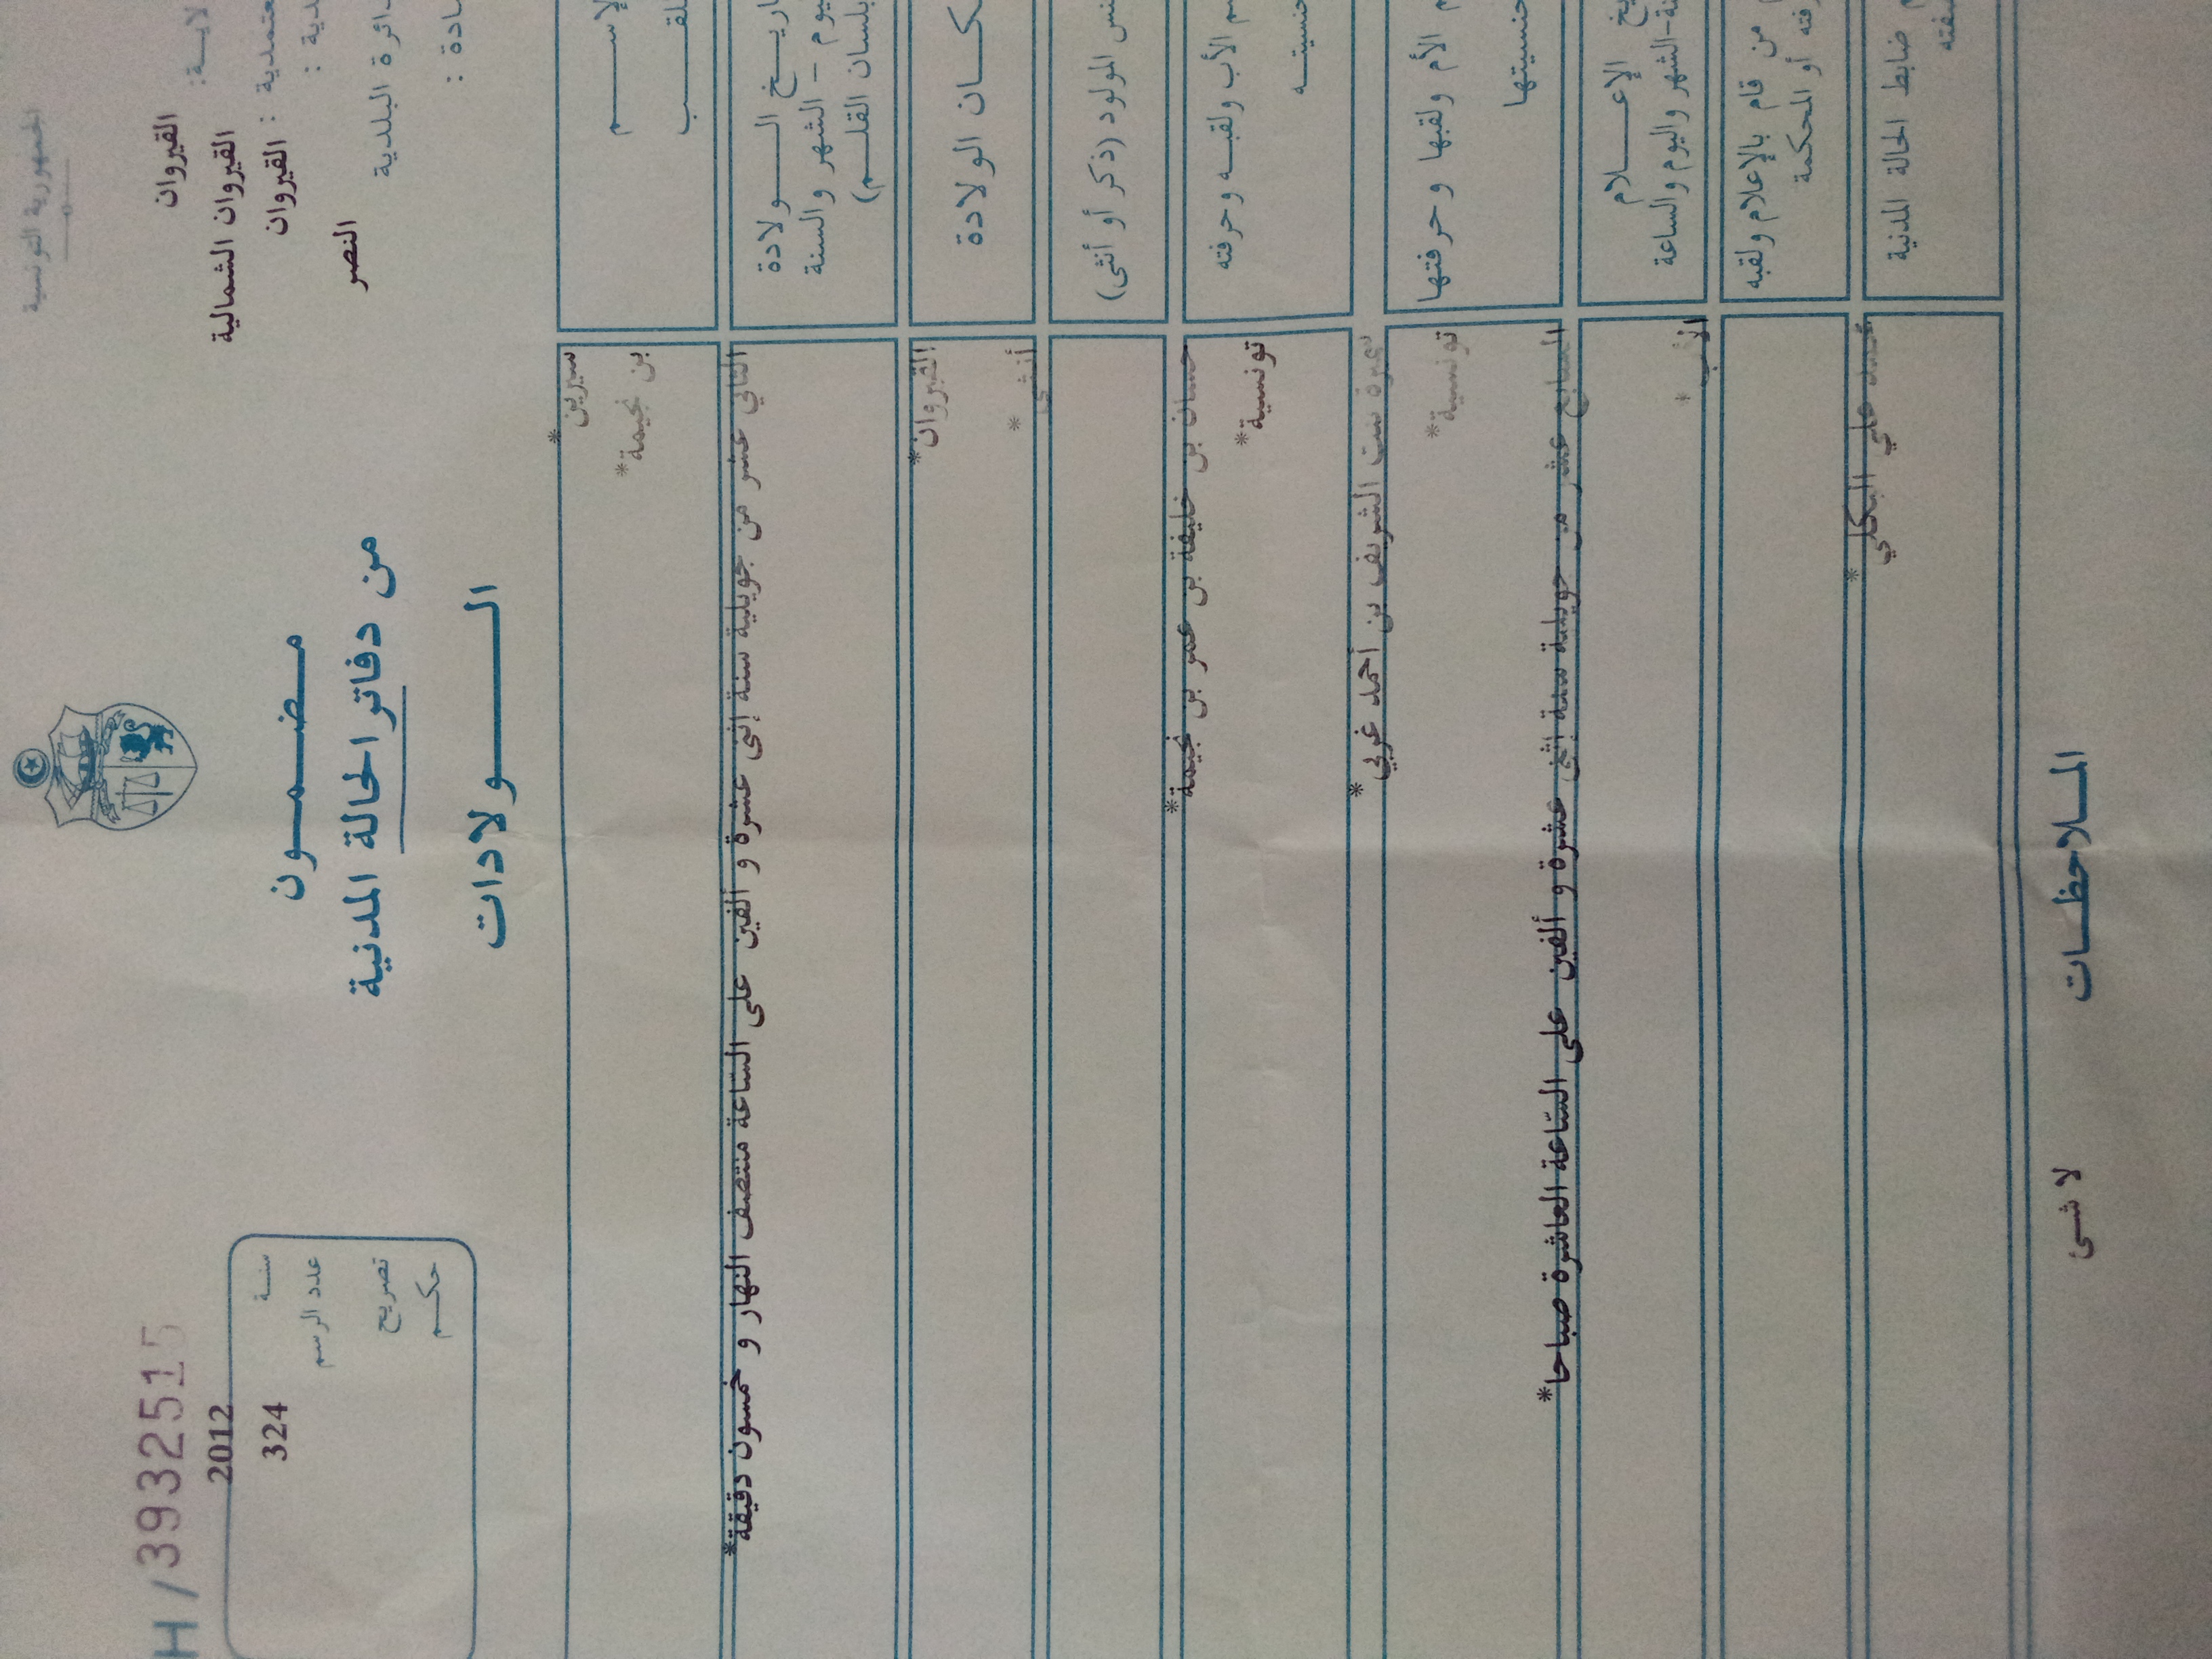 الجمهورية التونسية
القيروان
القيروان الشمالية
: القيروان
النصر
دائرة البلدية
H / 3932515
2012
سنة
324
عدد الرسم
تصريح
حكم
مضمون
من دفاتر الحالة المدنية
الولادات
الإسم
سيرين*
اللقب
بن نجيمة*
تاريخ الولادة
اليوم - الشهر والسنة
بلسان القلم)
الثاني عشر من جويلية سنة إثنى عشرة و ألفين على الساعة منتصف النهار و خمسون دقيقة*
مكان الولادة
القيروان*
جنس المولود (ذكر أو أنثى)
أنثى *
اسم الأب ولقبه وحرفته
جنسيته
حسان بن خليفة بن عمر بن نجيمة*
تونسية*
الأم ولقبها وحرفتها
جنسيتها
بنت الشريف بن أحمد غربي*
تونسية*
تاريخ الإعلام
السنة-الشهر واليوم والساعة
السابع عشر من جويلية سنة إثنى عشرة و ألفين على الساعة العاشرة صباحا*
من قام بالإعلام ولقبه
حرفته أو المحكمة
الأب *
ضابط الحالة المدنية
صفته
محمد علي البكلي *
الملاحظات
لا شئ